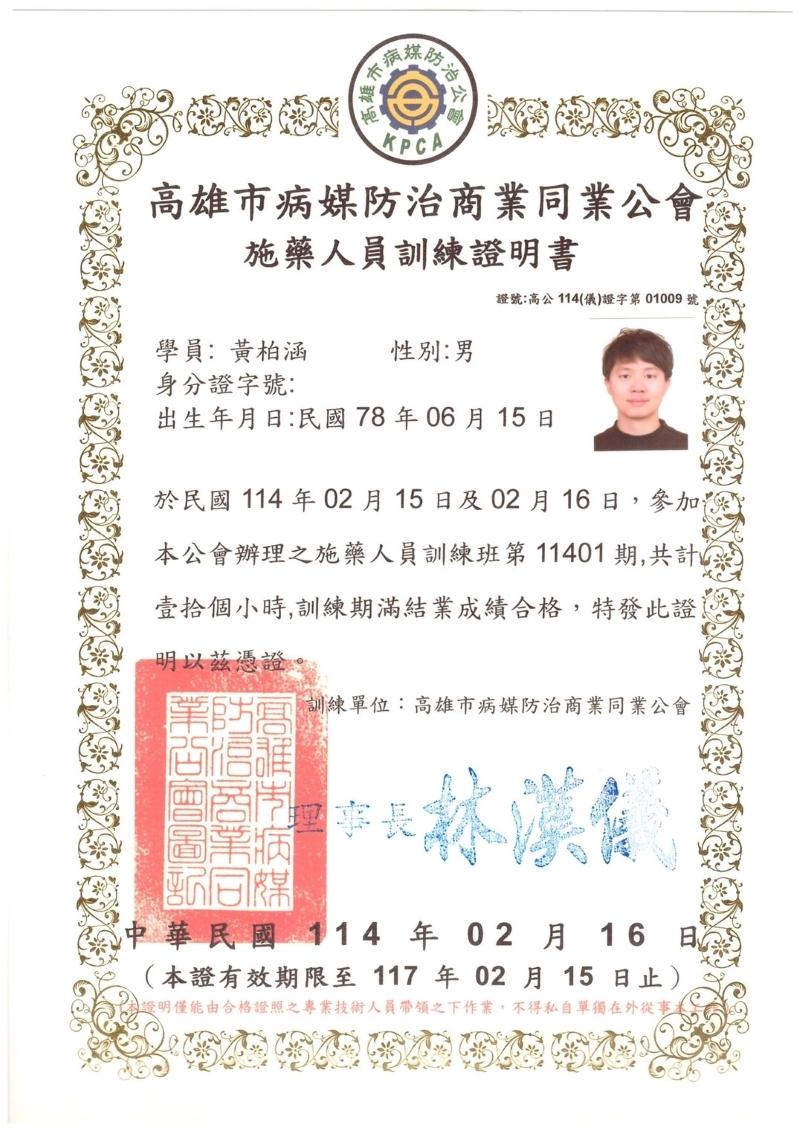 高雄市病媒防治公會
KPCA
高雄市病媒防治商業同業公會
施藥人員訓練證明書
證號:高公 114(儀)證字第 01009 號
學員: 黃柏涵 性別:男
身分證字號:
出生年月日:民國 78 年 06 月 15 日
於民國 114 年 02 月 15 日及 02 月 16 日，參加
本公會辦理之施藥人員訓練班第 11401 期,共計
壹拾個小時,訓練期滿結業成績合格，特發此證
明以茲憑證。
訓練單位：高雄市病媒防治商業同業公會
高雄市病媒
防治商業同
業公會圖記
理事長 林漢儀
中華民國 114 年 02 月 16 日
（本證有效期限至 117 年 02 月 15 日止）
本證明僅能由合格證照之專業技術人員帶領之下作業，不得私自單獨在外從事本